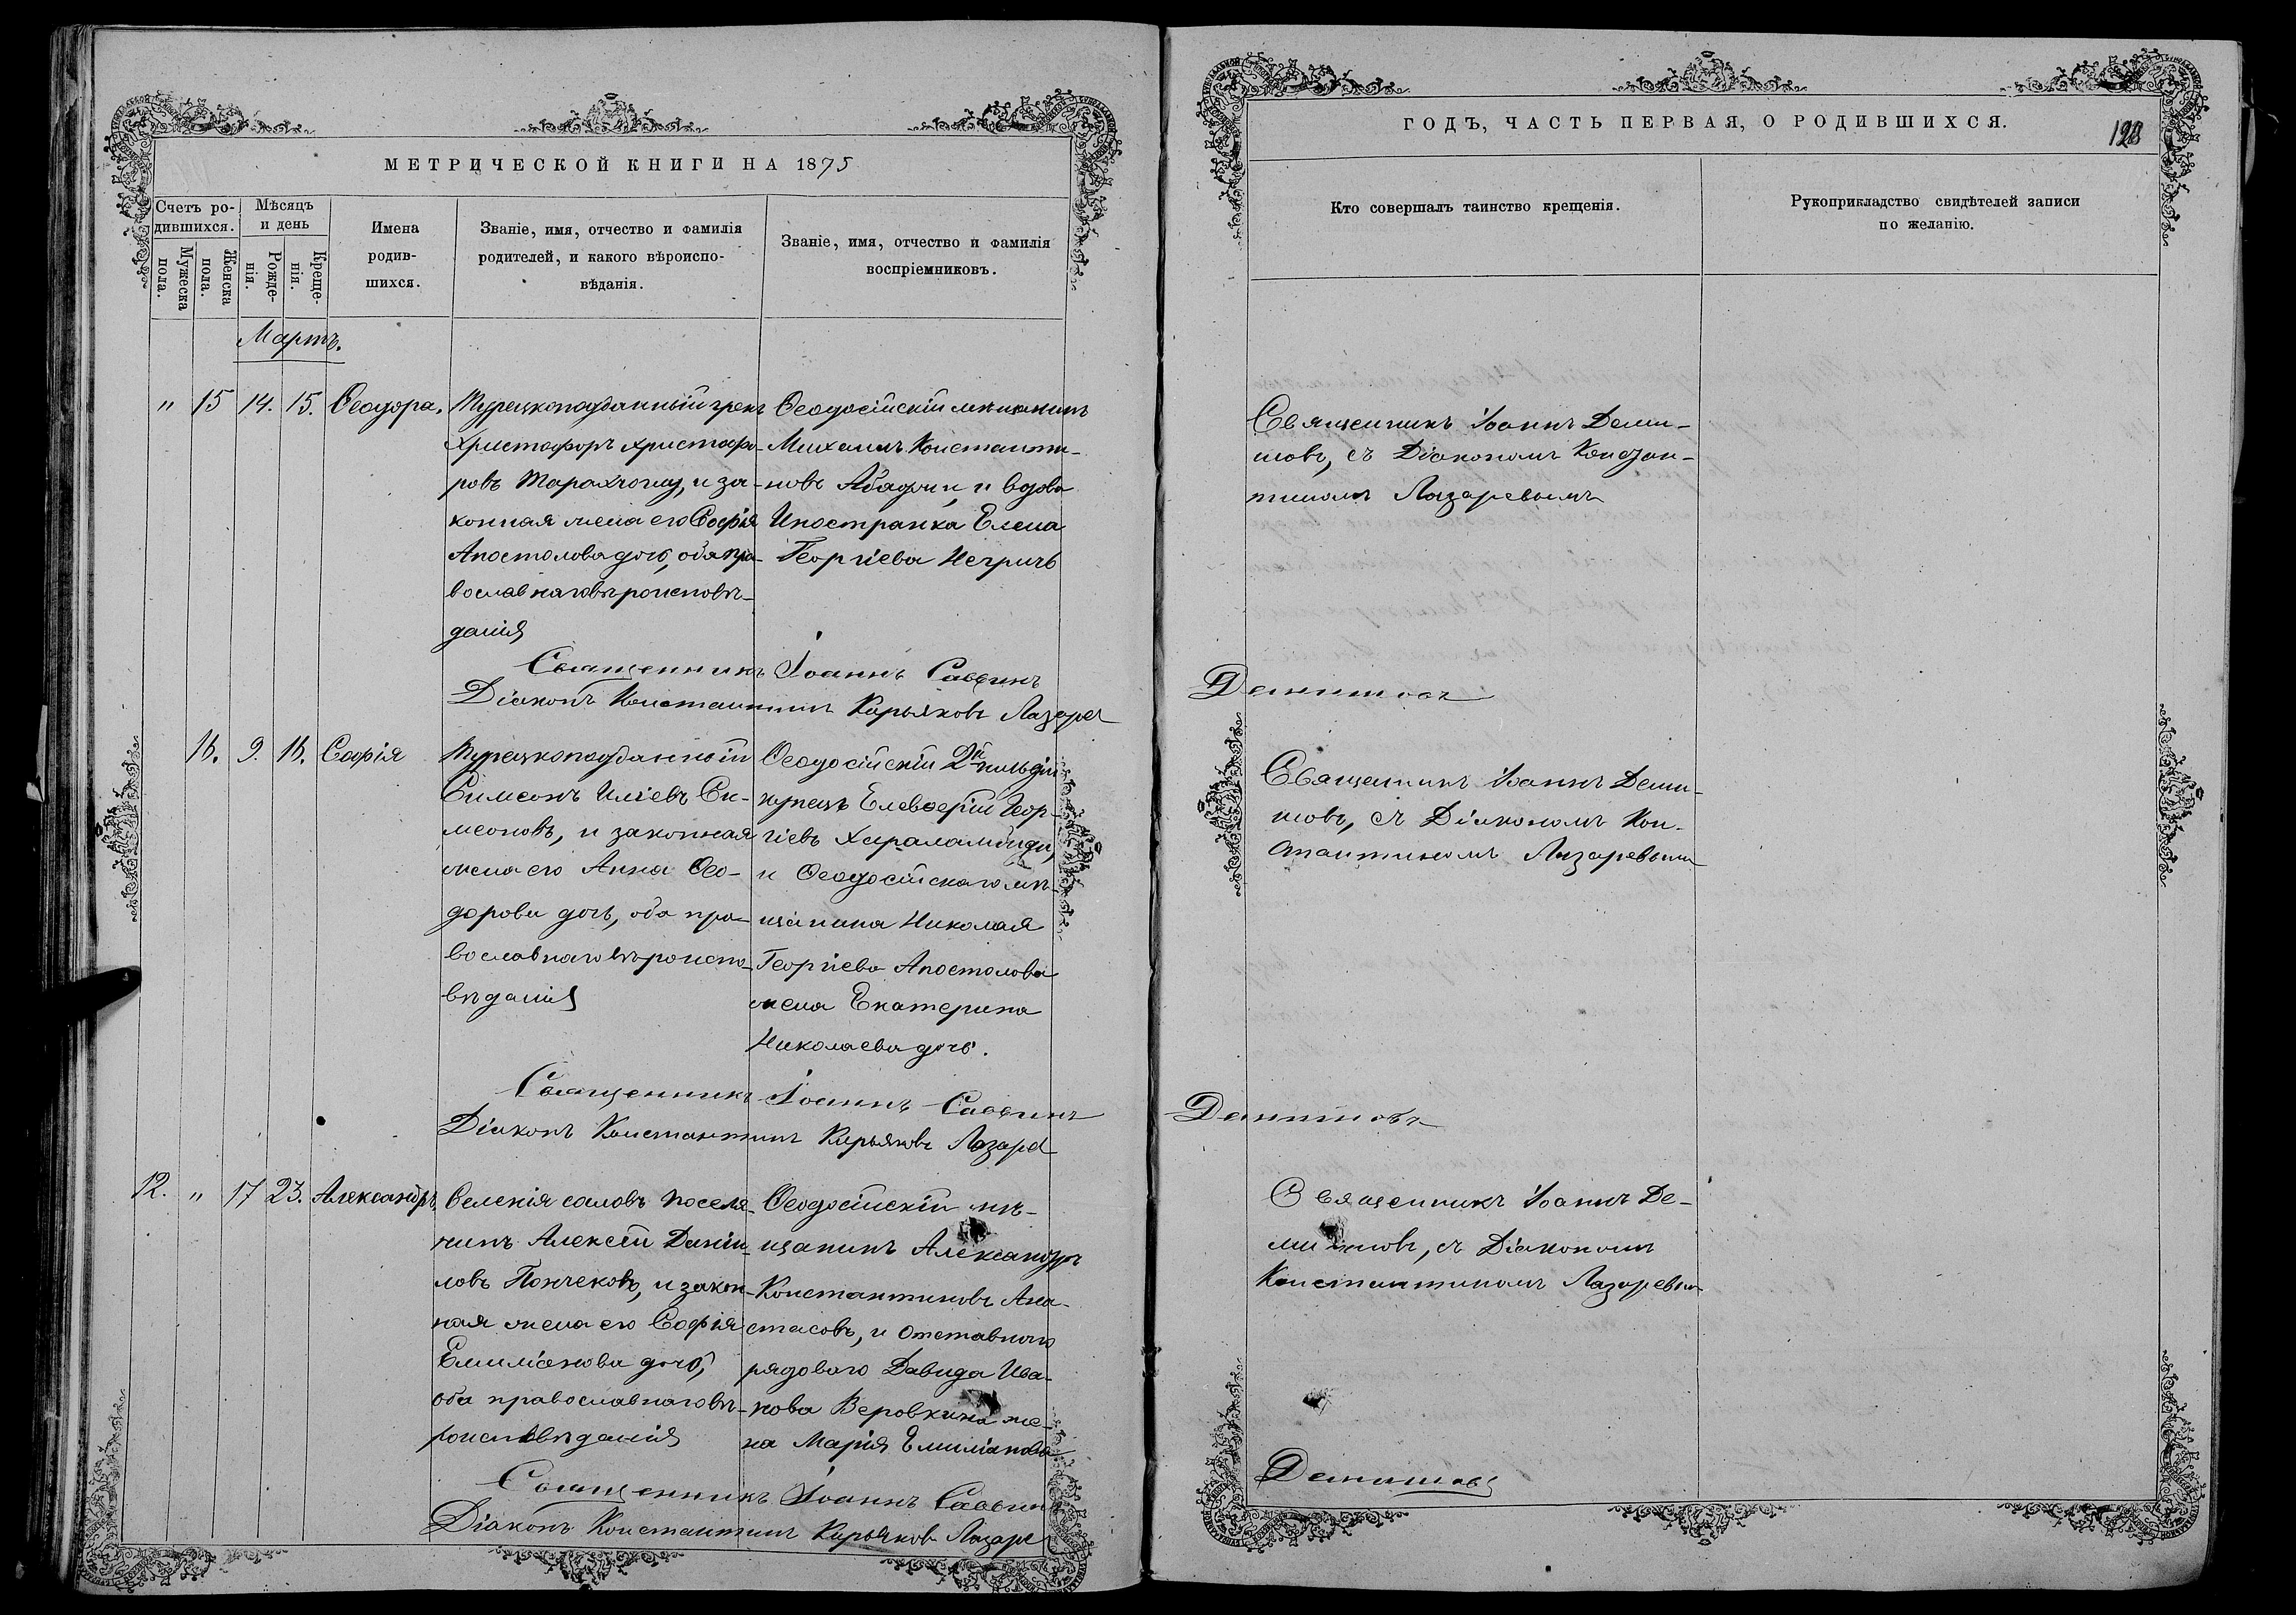 МЕТРИЧЕСКОЙ КНИГИ НА 1875
Счетъ ро-
дившихся.
Мужеска пола.
Женска пола.
Мѣсяцъ
и день
Рожде-
нія.
Креще-
нія.
Имена
родив-
шихся.
Званіе, имя, отчество и фамилія
родителей, и какого вѣроиспо-
вѣданія.
Званіе, имя, отчество и фамилія
воспріемниковъ.
Мартъ.
" 15 14. 15. Ѳеодора.
Турецкоподданный грекъ
Христофоръ Христофо-
ровъ и за-
конная жена его Софія
Апостолова дочь, оба пра-
вославнаго вѣроисповѣ-
данія
Ѳеодосійскій мѣщанинъ
Михаилъ Константи-
новъ и вдова
Иностранка Елена
Георгіева Негричъ
Священникъ Іоаннъ Саввинъ
Діаконъ Константинъ Кирьяковъ Лазаре
16. 9. 16. Софія
Турецкоподданный
Симеонъ Иліевъ Си-
меоновъ, и законная
жена его Анна Ѳео-
дорова дочь, оба пра-
вославнаго вѣроиспо-
вѣданія
Ѳеодосійскій 2й гильдіи
купецъ Елевѳерій Геор-
гіевъ Хараламбиди,
и Ѳеодосійскаго мѣ-
щанина Николая
Георгіева Апостолова
жена Екатерина
Николаева дочь.
Священникъ Іоаннъ Саввинъ
Діаконъ Константинъ Кирьяковъ Лазаре
12. " 17 23. Александръ
Селенія Саловъ поселя-
нинъ Алексѣй Даніи-
ловъ и закон-
ная жена его Софія
Емиліанова дочь,
оба православнаго вѣ-
роисповѣданія
Ѳеодосійскій мѣ-
щанинъ Александръ
Константиновъ Ана-
стасовъ, и отставного
рядового Давида Ива-
нова Веровкина же-
на Марія Емиліанова
Священникъ Іоаннъ Саввинъ
Діаконъ Константинъ Кирьяковъ Лазаре
ГОДЪ, ЧАСТЬ ПЕРВАЯ, О РОДИВШИХСЯ.
128
Кто совершалъ таинство крещенія.
Рукоприкладство свидѣтелей записи
по желанію.
Священникъ Іоаннъ Деми-
шовъ, съ Діакономъ Констан-
тиномъ Лазаревымъ
Демишовъ
Священникъ Іоаннъ Деми-
шовъ, съ Діакономъ Кон-
стантиномъ Лазаревым
Демишовъ
Священникъ Іоаннъ Де-
мишовъ, съ Діакономъ
Константиномъ Лазаревым
Демишовъ